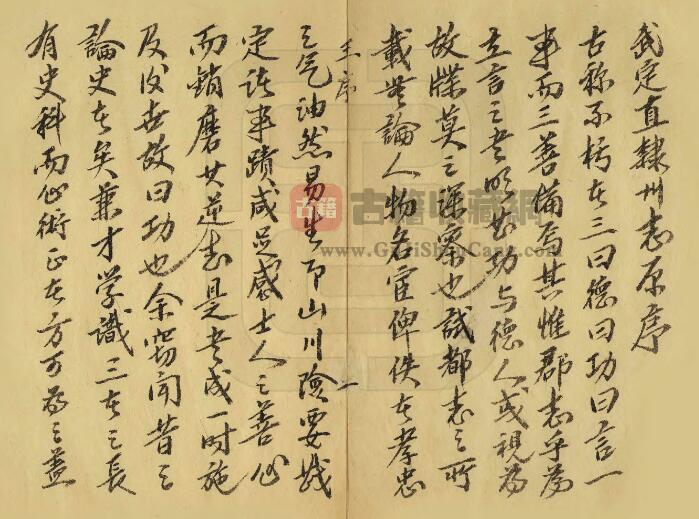 武定直隸州志原序
古称不朽在三曰德曰功曰言一
事而三善備焉其惟郡志乎為
立言之者明於功与德人或视为
故牒莫之深察也試都志之所
載無論人物名宦俾佚在孝忠
王序
一
之气油然易生即山川險要战
定诸事蹟咸足感士人之善心
而銷磨其逆志是書成一时施
及後世故曰功也余窃闻昔之
論史在矣兼才学識三在之長
有史科而心術正在方可為之蓋
古籍
古籍收藏網
www.GujiShouCang.com